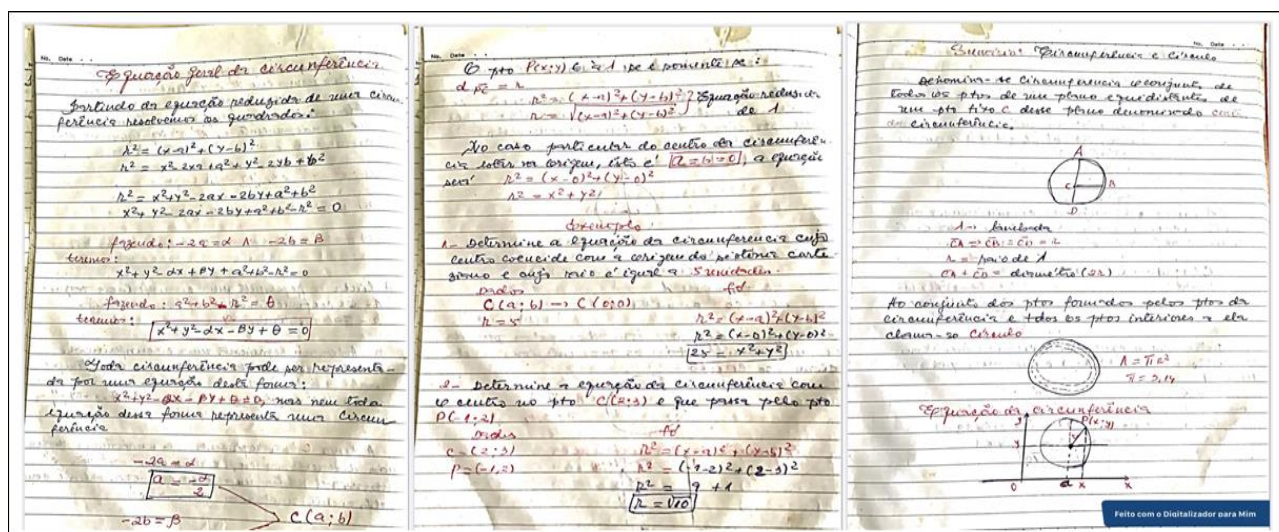 No. Date
Equação geral da circunferência
Partindo da equação reduzida de uma circun-
ferência resolvemos os quadrados:
r² = (x-a)² + (y-b)²
r² = x² - 2xa + a² + y² - 2yb + b²
r² = x² + y² - 2ax - 2by + a² + b²
x² + y² - 2ax - 2by + a² + b² - r² = 0
fazendo: -2a = α ∧ -2b = β
teremos:
x² + y² - αx + βy + a² + b² - r² = 0
fazendo: a² + b² - r² = θ
teremos:
x² + y² - αx - βy + θ = 0
Toda circunferência pode ser representa-
da por uma equação desta forma:
x² + y² - αx - βy + θ = 0, mas nem toda
equação dessa forma representa uma circun
ferência
-2a = α
a = -α/2
-2b = β
C(a; b)
No. Date
O pto P(x; y) se e somente se:
d = r
r² = (x-a)² + (y-b)²
r = √(x-a)² + (y-b)²
Equação reduzida
de
No caso particular do centro da circunferên-
cia estar na origem, isto é a = b = 0, a equação
será
r² = (x-0)² + (y-0)²
r² = x² + y²
Exemplo
1- Determine a equação da circunferência cujo
centro coencide com a origem do sistema carte
siano e cujo raio é igual a 5 unidades.
Dados
C(a; b) → C(0;0)
r = 5
r² = (x-a)² + (y-b)²
r² = (x-0)² + (y-0)²
25 = x² + y²
2- Determine a equação da circunferência com
o centro no pto C(2;3) e que passa pelo pto
P(-1; 2)
Dados
C = (2; 3)
P = (-1, 2)
r² = (x-a)² + (y-b)²
r² = (-1-2)² + (2-3)²
r² = 9 + 1
r = √10
No. Date
Sumário: Circunferência e círculo
Denomina-se circunferência o conjunto de
todos os ptos de um plano equidistantes de
um pto fixo C desse plano denominado
da circunferência.
A
C
B
D
CA = CB = CD = r
r = raio de
CA + CD = diametro (2r)
Ao conjunto dos ptos formados pelos ptos da
circunferência e todos os ptos interiores a ela
chama-se Círculo
A = πr²
π = 3,14
Equação da circunferência
y
P(x; y)
y
r
0
a
x
x
Feito com o Digitalizador para Mim